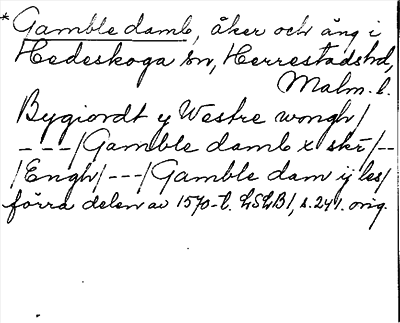 * Gamble damb, åker och äng i
Hedeskoga sn, Herrestads hd,
Malm. l.
Bygiordt y Westre wongh/
---/Gamble damb x skr/--
/Engh/---/Gamble dam ij les/
förra delen av 1570-t. LSLB1, s. 241. orig.